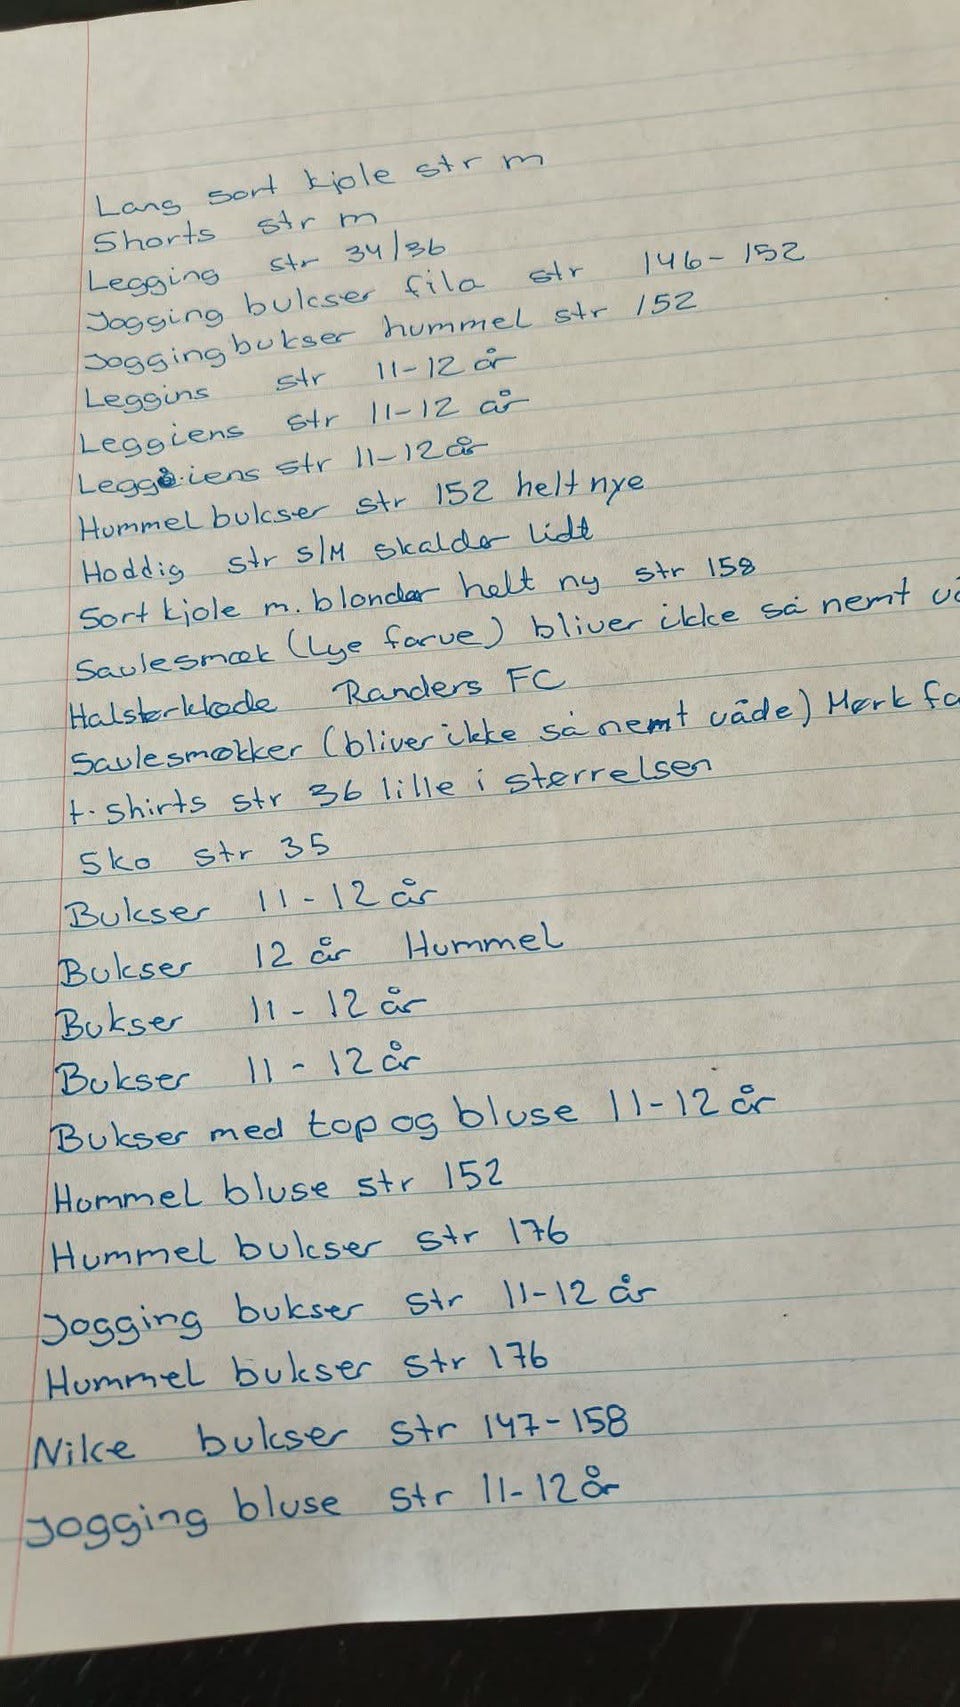 Lang sort kjole str m
Shorts str m
Legging str 34/36
Jogging bukser fila str 146-152
Joggingbukser hummel str 152
Leggins str 11-12 år
Leggiens str 11-12 år
Leggiens str 11-12 år
Hummel bukser str 152 helt nye
Hoddig str S/M skalder lidt
Sort kjole m. blonder helt ny str 158
Savlesmæk (Lye farve) bliver ikke så nemt
Halstørklæde Randers FC
Savlesmækker (bliver ikke så nemt våde) Mørk
t-shirts str 36 lille i størrelsen
Sko str 35
Bukser 11-12 år
Bukser 12 år Hummel
Bukser 11-12 år
Bukser 11-12 år
Bukser med top og bluse 11-12 år
Hummel bluse str 152
Hummel bukser str 176
Jogging bukser str 11-12 år
Hummel bukser str 176
Nike bukser str 147-158
Jogging bluse str 11-12 år